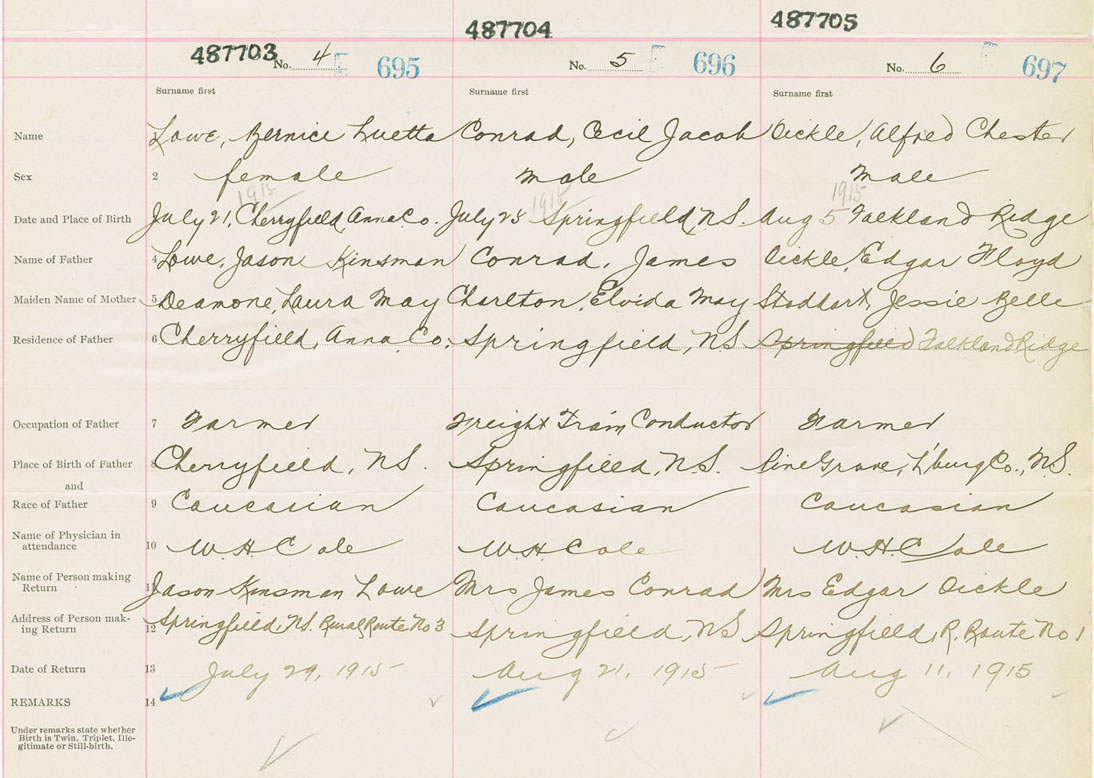 487703 487704 487705
No. 4 695 No. 5 696 No. 6 697
Surname first Surname first Surname first
Name Lowe, Bernice Luetta Conrad, Cecil Jacob Oickle, Alfred Chester
Sex 2 female male Male
1915 1915 1915
Date and Place of Birth July 21, Cherryfield, Anna. Co. July 25 Springfield, N.S. Aug 5 Falkland Ridge
Name of Father 4 Lowe, Jason Kinsman Conrad, James Oickle, Edgar Floyd
Maiden Name of Mother 5 Deamone, Laura May Charlton, Elvida May Stoddart, Jessie Belle
Residence of Father 6 Cherryfield, Anna. Co. Springfield, NS Springfield Falkland Ridge
Occupation of Father 7 Farmer Freight Train Conductor Farmer
Place of Birth of Father 8 Cherryfield, NS. Springfield, N.S. Pine Grove, L'burg Co., N.S.
and
Race of Father 9 Caucasian Caucasian Caucasian
Name of Physician in
attendance 10 W. H. Cole W. H. Cole W. H. Cole
Name of Person making
Return 11 Jason Kinsman Lowe Mrs James Conrad Mrs Edgar Oickle
Address of Person mak-
ing Return 12 Springfield, N.S. Rural Route No 3 Springfield, NS Springfield, R. Route No 1
Date of Return 13 July 29, 1915 Aug 21, 1915 Aug 11, 1915
REMARKS 14
Under remarks state whether
Birth is Twin, Triplet, Ille-
gitimate or Still-birth.